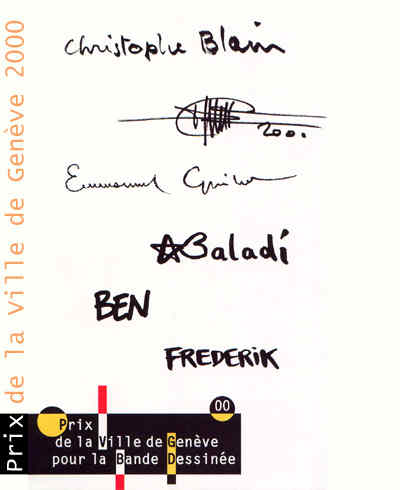 Prix de la Ville de Genève 2000
Christophe Blain
2001
Emmanuel
Baladí
BEN
FREDERIK
00
Prix
de la Ville de Genève
pour la Bande Dessinée